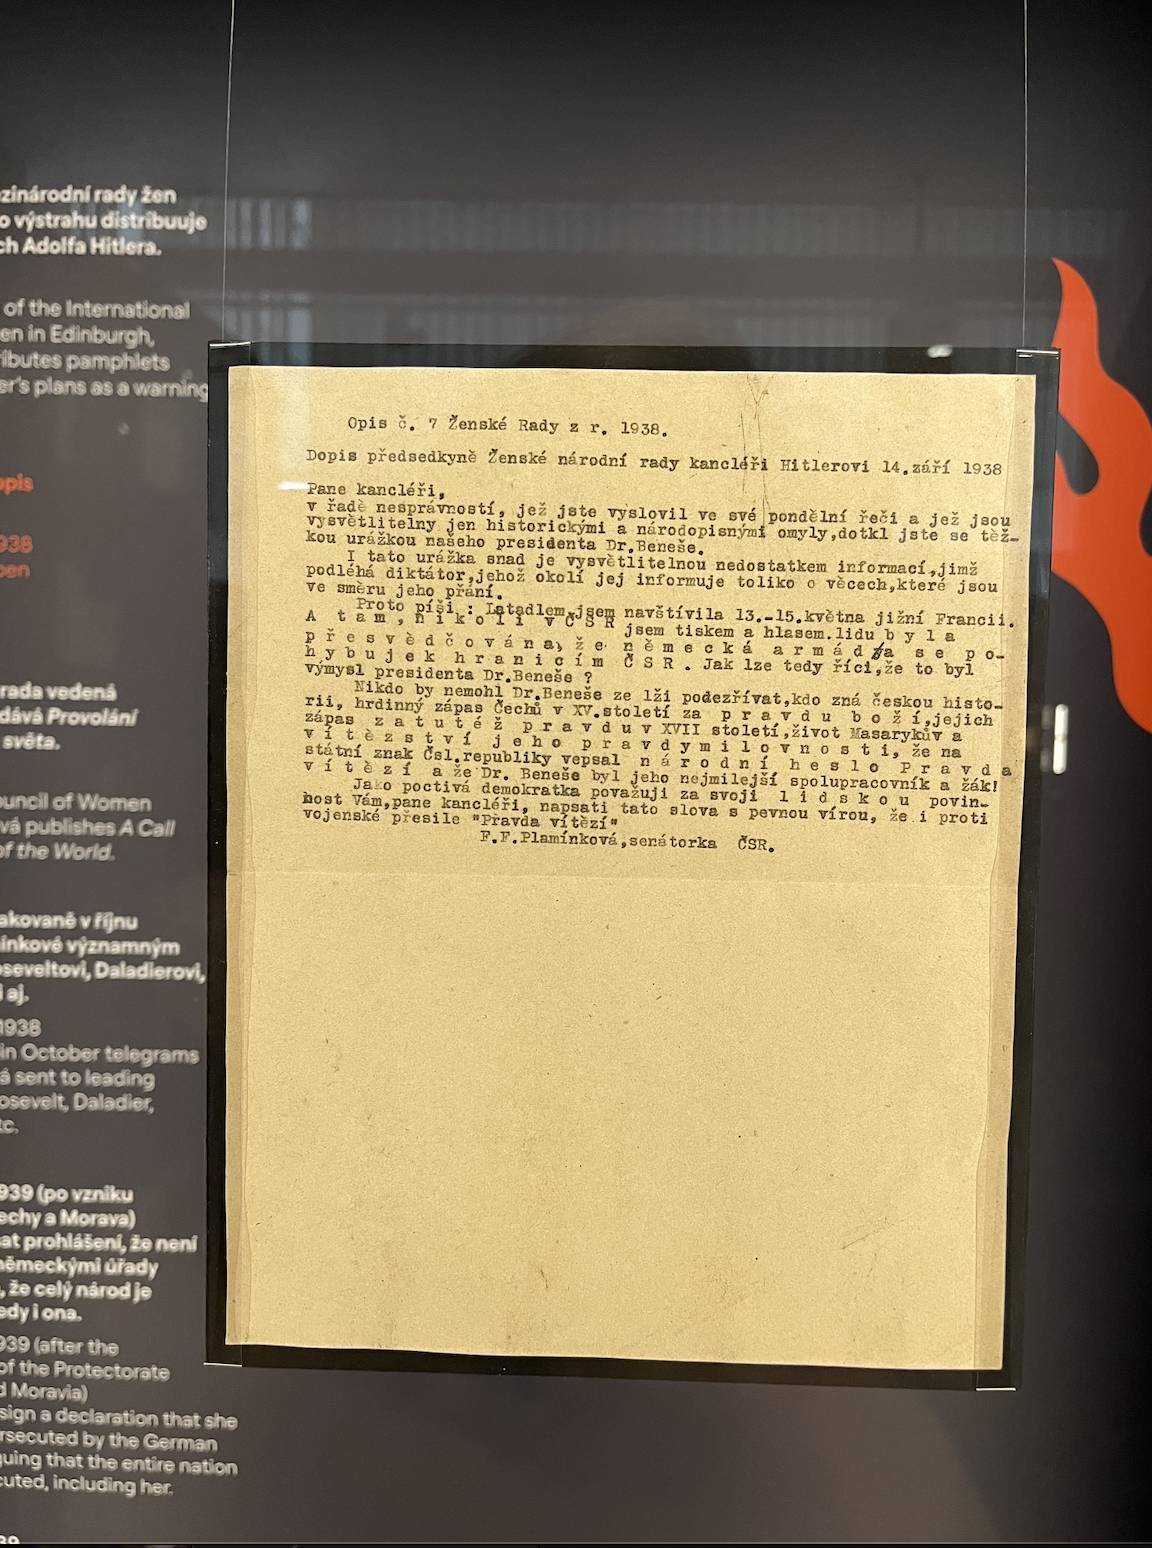 zinárodní rady žen
o výstrahu distribuuje
ch Adolfa Hitlera.
of the International
en in Edinburgh,
ributes pamphlets
er's plans as a warning
opis
938
pen
rada vedená
dává Provolání
světa.
ouncil of Women
vá publishes A Call
of the World.
akovaně v říjnu
ínkové významným
oseveltovi, Daladierovi,
i aj.
1938
in October telegrams
á sent to leading
osevelt, Daladier,
tc.
939 (po vzniku
echy a Morava)
at prohlášení, že není
německými úřady
, že celý národ je
edy i ona.
939 (after the
of the Protectorate
d Moravia)
sign a declaration that she
rsecuted by the German
guing that the entire nation
cuted, including her.
39
Opis č. 7 Ženské Rady z r. 1938.
Dopis předsedkyně Ženské národní rady kancléři Hitlerovi 14.září 1938
Pane kancléři,
v řadě nesprávností, jež jste vyslovil ve své pondělní řeči a jež jsou
vysvětlitelny jen historickými a národopisnými omyly,dotkl jste se těž-
kou urážkou našeho presidenta Dr.Beneše.
I tato urážka snad je vysvětlitelnou nedostatkem informací,jimž
podléhá diktátor,jehož okolí jej informuje toliko o věcech,které jsou
ve směru jeho přání.
Proto píši : Letadlem jsem navštívila 13.-15.května jižní Francii.
A t a m , n i k o l i v Č S R jsem tiskem a hlasem.lidu b y l a
p ř e s v ě d č o v á n a, ž e n ě m e c k á a r m á d a s e p o-
h y b u j e k h r a n i c í m Č S R . Jak lze tedy říci,že to byl
výmysl presidenta Dr.Beneše ?
Nikdo by nemohl Dr.Beneše ze lži podezřívat,kdo zná českou histo-
rii, hrdinný zápas Čechů v XV.století za p r a v d u b o ž í,jejich
zápas z a t u t é ž p r a v d u v XVII století,život Masarykův a
v í t ě z s t v í j e h o p r a v d y m i l o v n o s t i, že na
státní znak Čsl.republiky vepsal n á r o d n í h e s l o P r a v d a
v í t ě z í a že Dr. Beneše byl jeho nejmilejší spolupracovník a žák!
Jako poctivá demokratka považuji za svoji l i d s k o u povin-
nost Vám,pane kancléři, napsati tato slova s pevnou vírou, že i proti
vojenské přesile "Pravda vítězí"
F.F.Plamínková,senátorka ČSR.